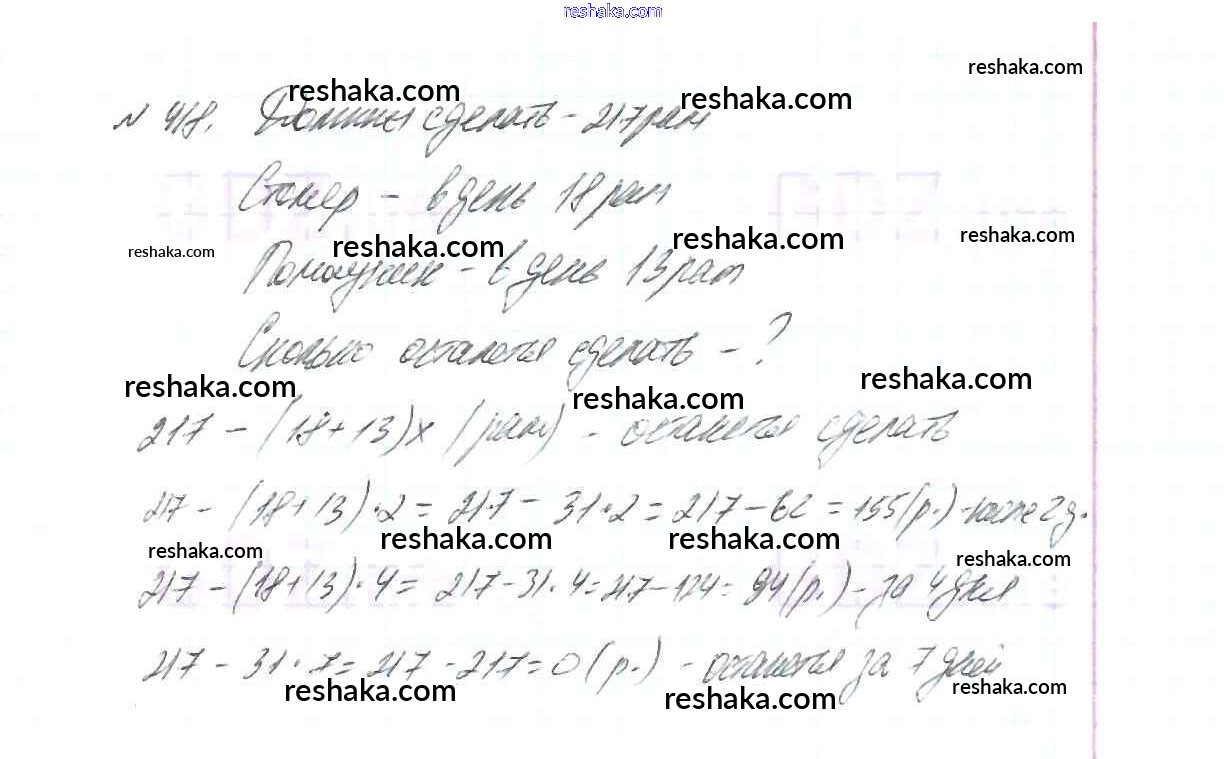 reshaka.com
reshaka.com
№ 418. Должны сделать - 217 рам
reshaka.com reshaka.com
Столяр - в день 18 рам
reshaka.com reshaka.com reshaka.com reshaka.com
Помощник - в день 13 рам
Сколько останется сделать - ?
reshaka.com reshaka.com reshaka.com
217 - (18 + 13)x (рам) - останется сделать
217 - (18 + 13) · 2 = 217 - 31 · 2 = 217 - 62 = 155 (р.) - после 2 д.
reshaka.com reshaka.com reshaka.com reshaka.com
217 - (18 + 13) · 4 = 217 - 31 · 4 = 217 - 124 = 94 (р.) - за 4 дня
217 - 31 · 7 = 217 - 217 = 0 (р.) - останется за 7 дней
reshaka.com reshaka.com reshaka.com